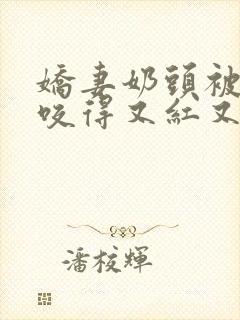 嬌妻奶頭被
咬得又紅又
潘校輝